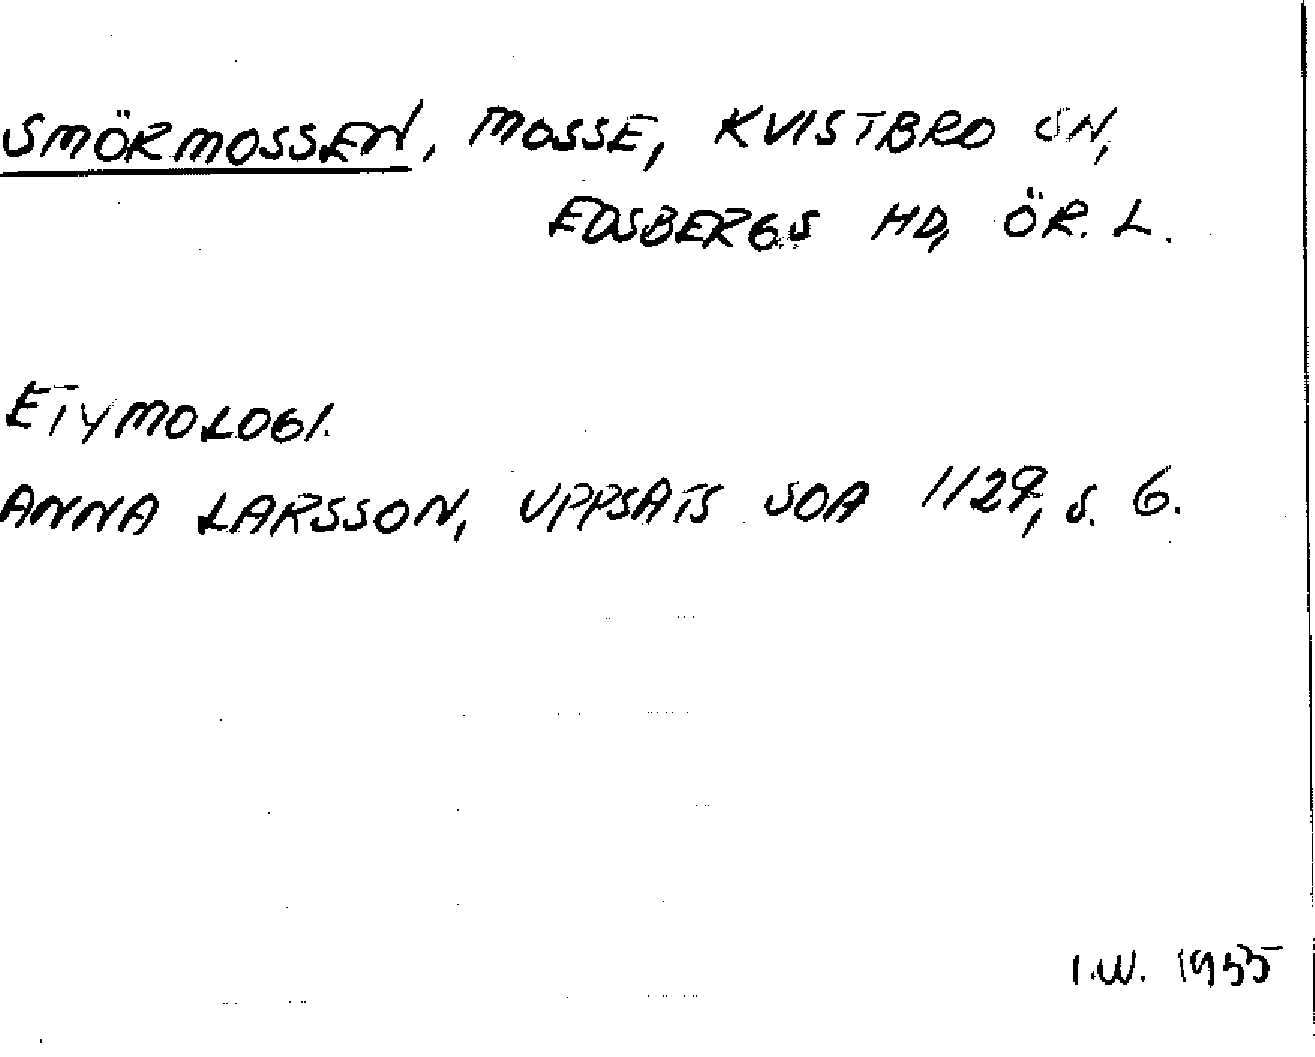 SMÖRMOSSEN, MOSSE, KVISTBRO SN,
EDSBERGS HD, ÖR. L.
ETYMOLOGI.
ANNA LARSSON, UPPSATS SOA 1129, S. 6.
I.W. 1955